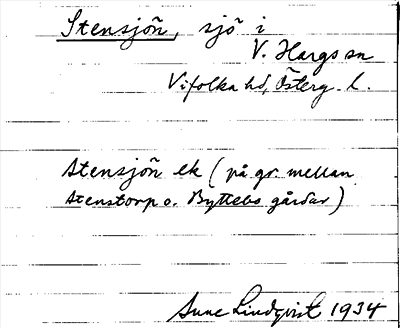 Stensjön, sjö i
V. Hargs sn
Vifolka hd, Österg. l.
Stensjön ek (på gr. mellan
Stenstorp o. Byttebo gårdar)
Sune Lindqvist 1934